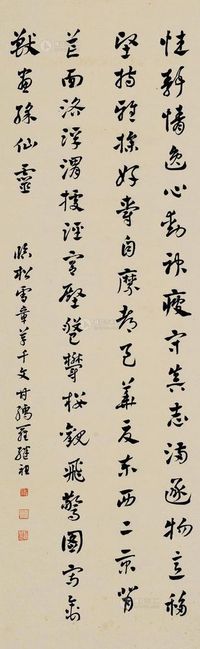 性靜情逸心動神疲守真志滿逐物意移
堅持雅操好爵自縻都邑華夏東西二京背
芒面洛浮渭據涇宮殿盤鬱樓觀飛驚圖寫禽
獸畫綵仙靈
臨松雪章草千文甘孺羅繼祖